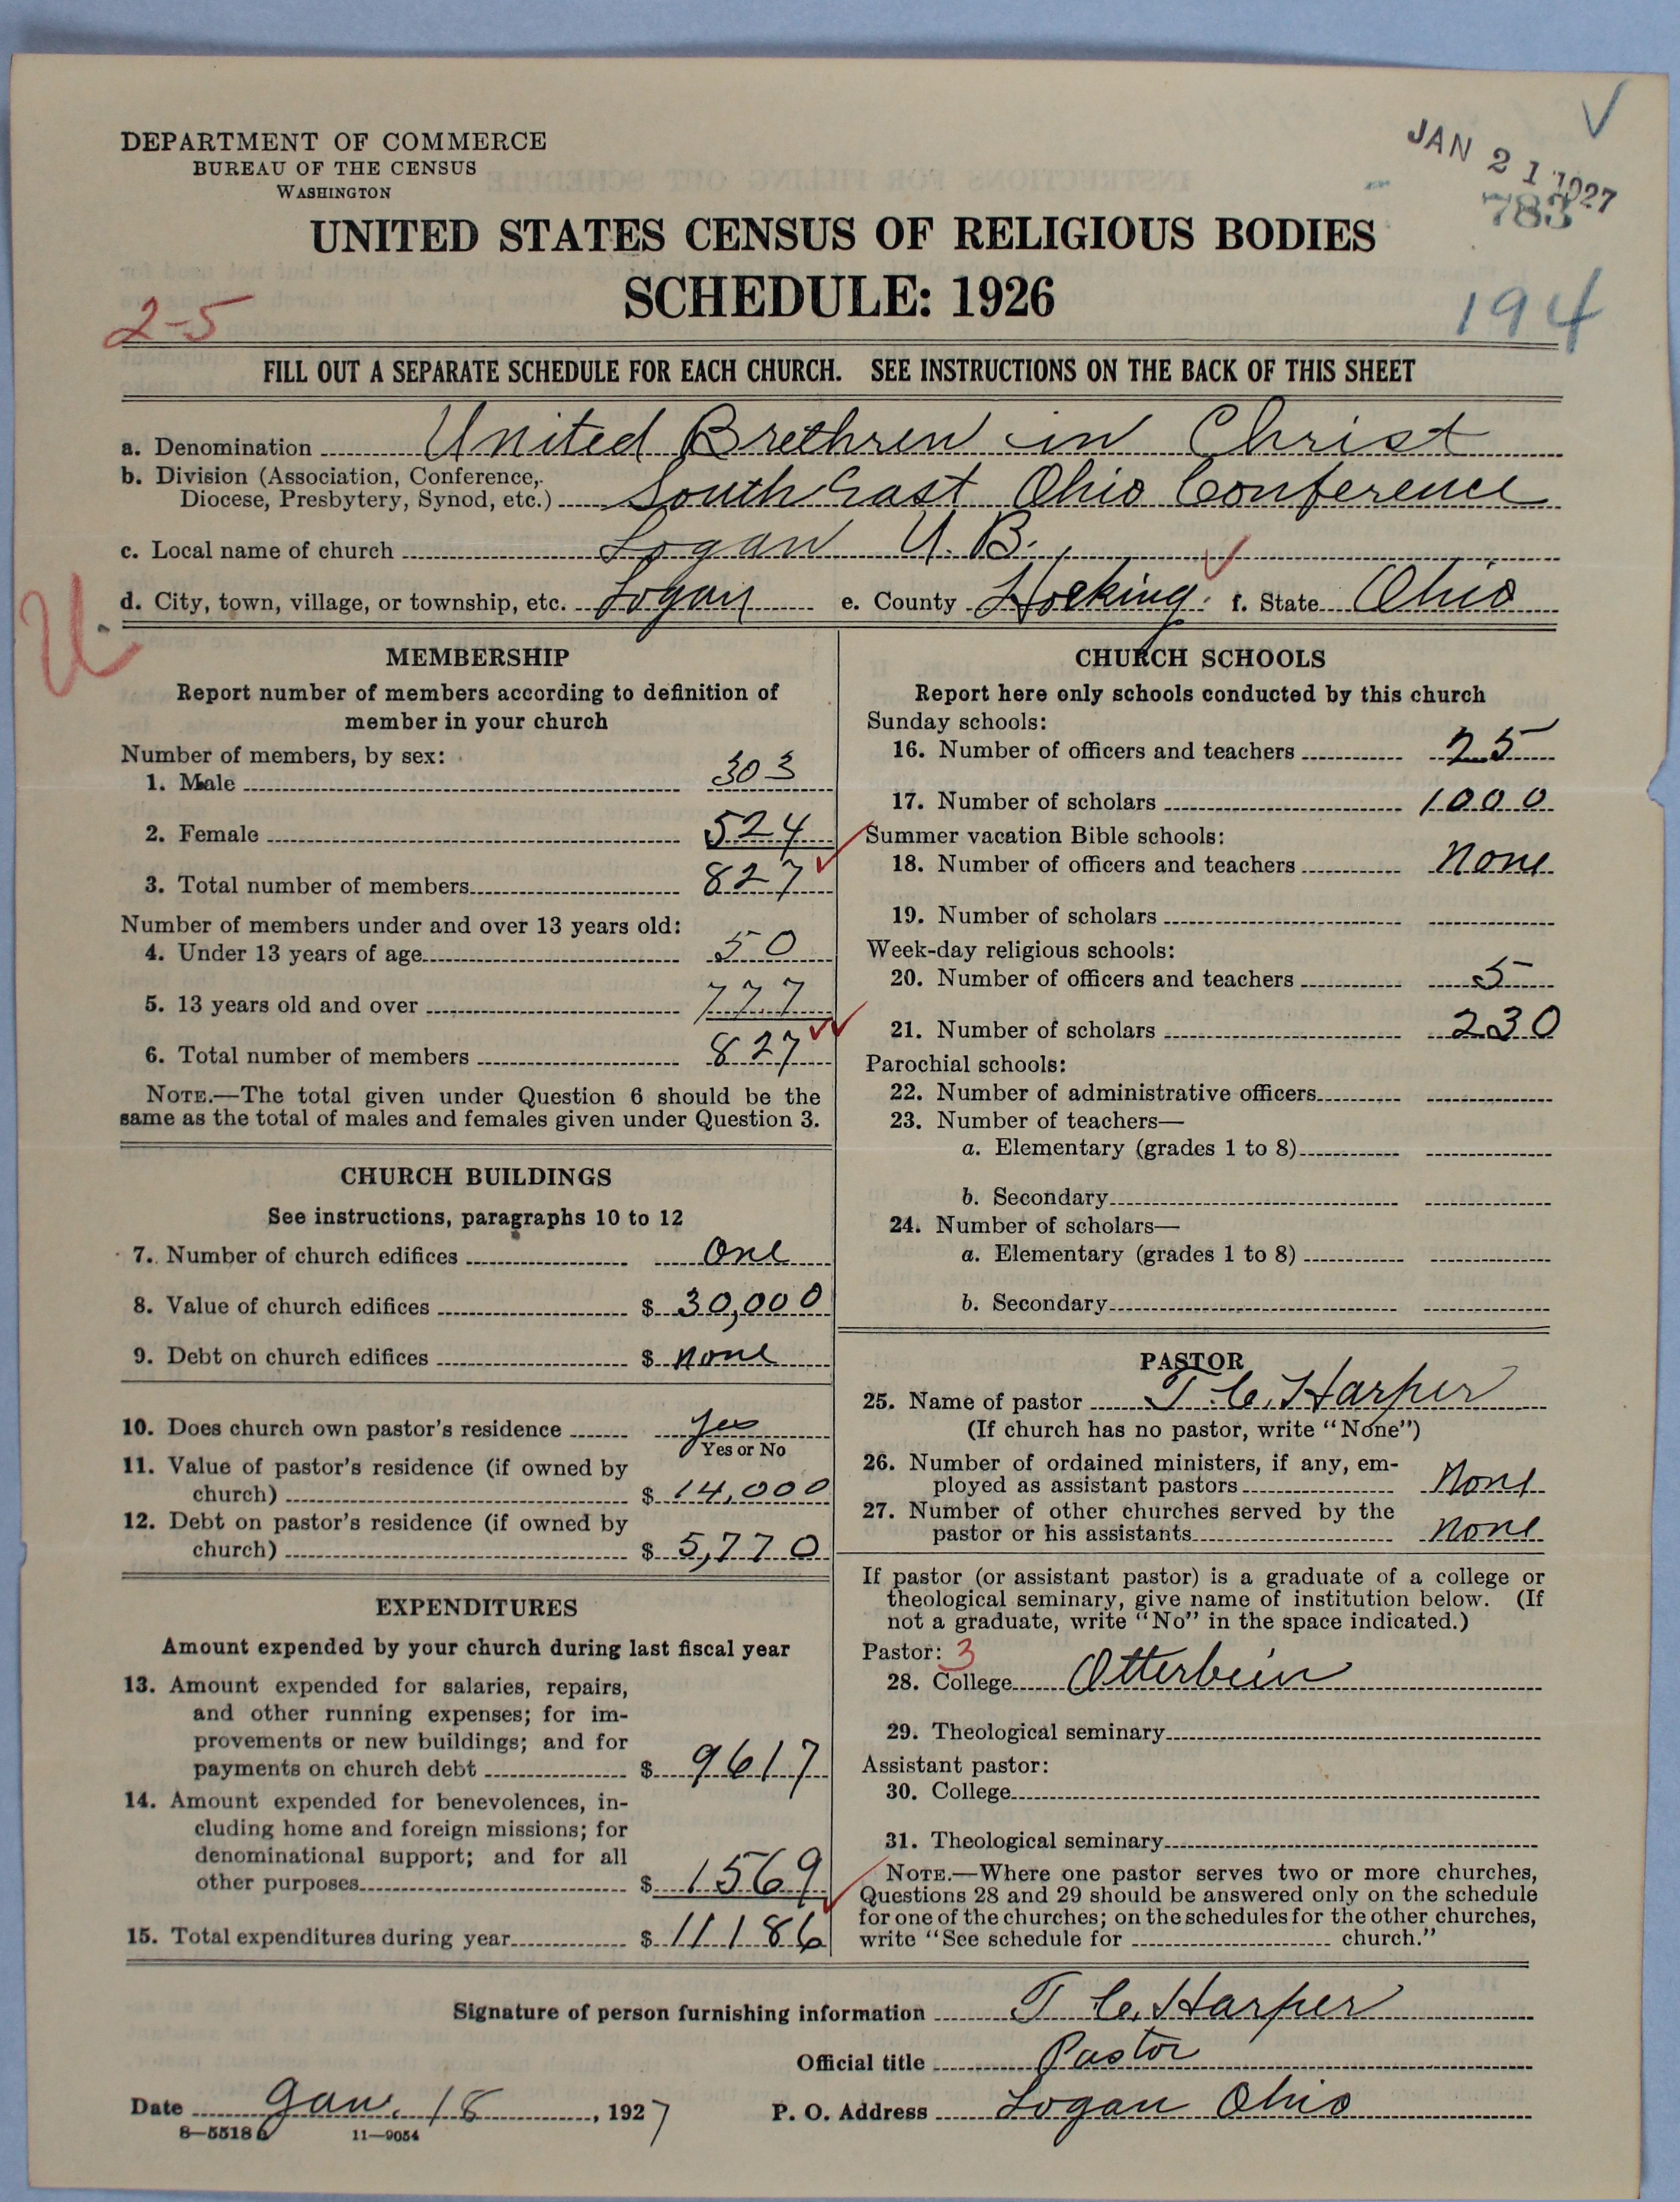 DEPARTMENT OF COMMERCE
BUREAU OF THE CENSUS
WASHINGTON
JAN 21 1927
783
UNITED STATES CENSUS OF RELIGIOUS BODIES
SCHEDULE: 1926
2-5
194
FILL OUT A SEPARATE SCHEDULE FOR EACH CHURCH. SEE INSTRUCTIONS ON THE BACK OF THIS SHEET
a. Denomination United Brethren in Christ
b. Division (Association, Conference,
Diocese, Presbytery, Synod, etc.) South East Ohio Conference
c. Local name of church Logan U. B.
d. City, town, village, or township, etc. Logan e. County Hocking f. State Ohio
U
MEMBERSHIP
Report number of members according to definition of
member in your church
Number of members, by sex:
1. Male 303
2. Female 524
3. Total number of members 827
Number of members under and over 13 years old:
4. Under 13 years of age 50
5. 13 years old and over 777
6. Total number of members 827
NOTE.—The total given under Question 6 should be the
same as the total of males and females given under Question 3.
CHURCH BUILDINGS
See instructions, paragraphs 10 to 12
7. Number of church edifices One
8. Value of church edifices $ 30,000
9. Debt on church edifices $ none
10. Does church own pastor's residence Yes
Yes or No
11. Value of pastor's residence (if owned by
church) $ 14,000
12. Debt on pastor's residence (if owned by
church) $ 5,770
EXPENDITURES
Amount expended by your church during last fiscal year
13. Amount expended for salaries, repairs,
and other running expenses; for im-
provements or new buildings; and for
payments on church debt $ 9617
14. Amount expended for benevolences, in-
cluding home and foreign missions; for
denominational support; and for all
other purposes $ 1569
15. Total expenditures during year $ 11186
CHURCH SCHOOLS
Report here only schools conducted by this church
Sunday schools:
16. Number of officers and teachers 25
17. Number of scholars 1000
Summer vacation Bible schools:
18. Number of officers and teachers None
19. Number of scholars
Week-day religious schools:
20. Number of officers and teachers 5
21. Number of scholars 230
Parochial schools:
22. Number of administrative officers
23. Number of teachers—
a. Elementary (grades 1 to 8)
b. Secondary
24. Number of scholars—
a. Elementary (grades 1 to 8)
b. Secondary
PASTOR
25. Name of pastor T. C. Harper
(If church has no pastor, write "None")
26. Number of ordained ministers, if any, em-
ployed as assistant pastors None
27. Number of other churches served by the
pastor or his assistants None
If pastor (or assistant pastor) is a graduate of a college or
theological seminary, give name of institution below. (If
not a graduate, write "No" in the space indicated.)
Pastor: 3
28. College Otterbein
29. Theological seminary
Assistant pastor:
30. College
31. Theological seminary
NOTE.—Where one pastor serves two or more churches,
Questions 28 and 29 should be answered only on the schedule
for one of the churches; on the schedules for the other churches,
write "See schedule for church."
Signature of person furnishing information T C. Harper
Official title Pastor
Date Jan. 18, 1927 P. O. Address Logan Ohio
8—5518 a 11—9054